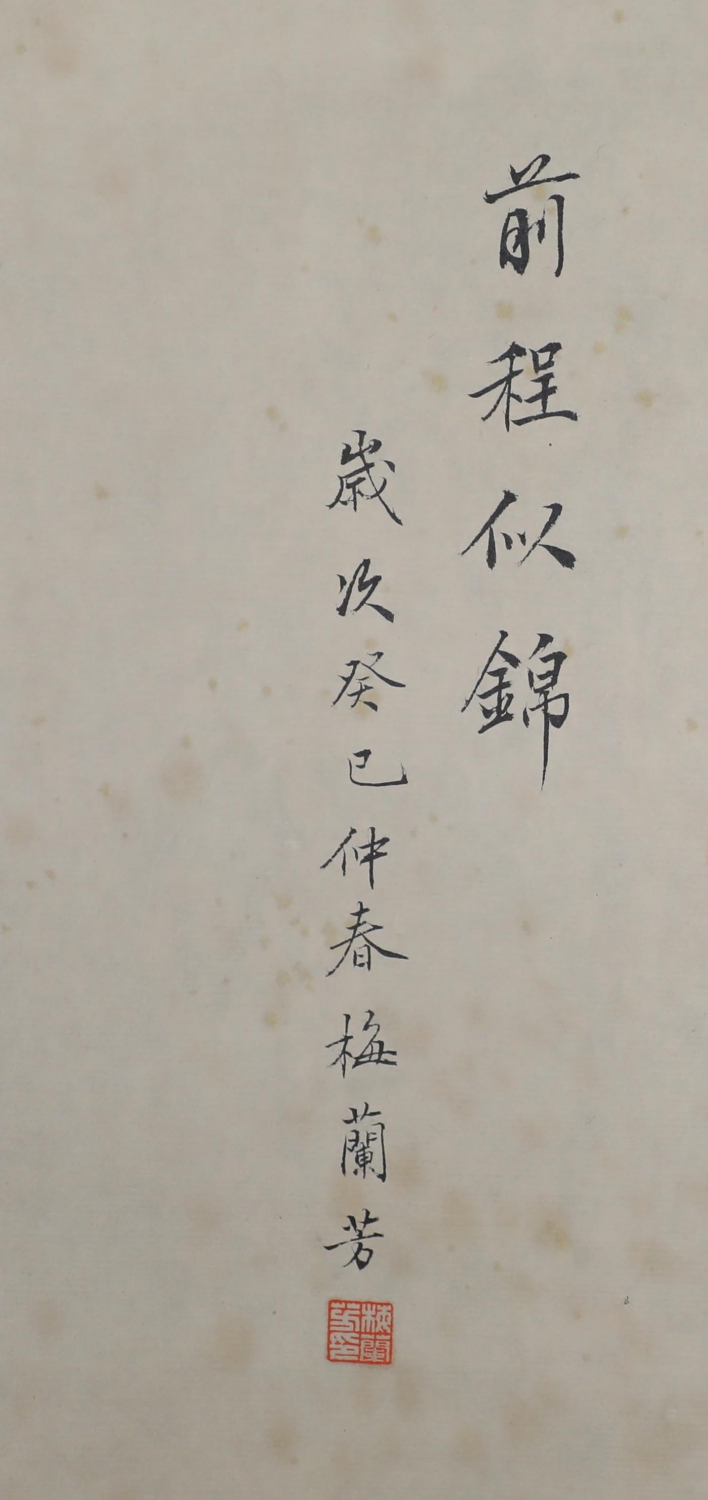 前程似錦
歲次癸巳仲春梅蘭芳
梅蘭芳印